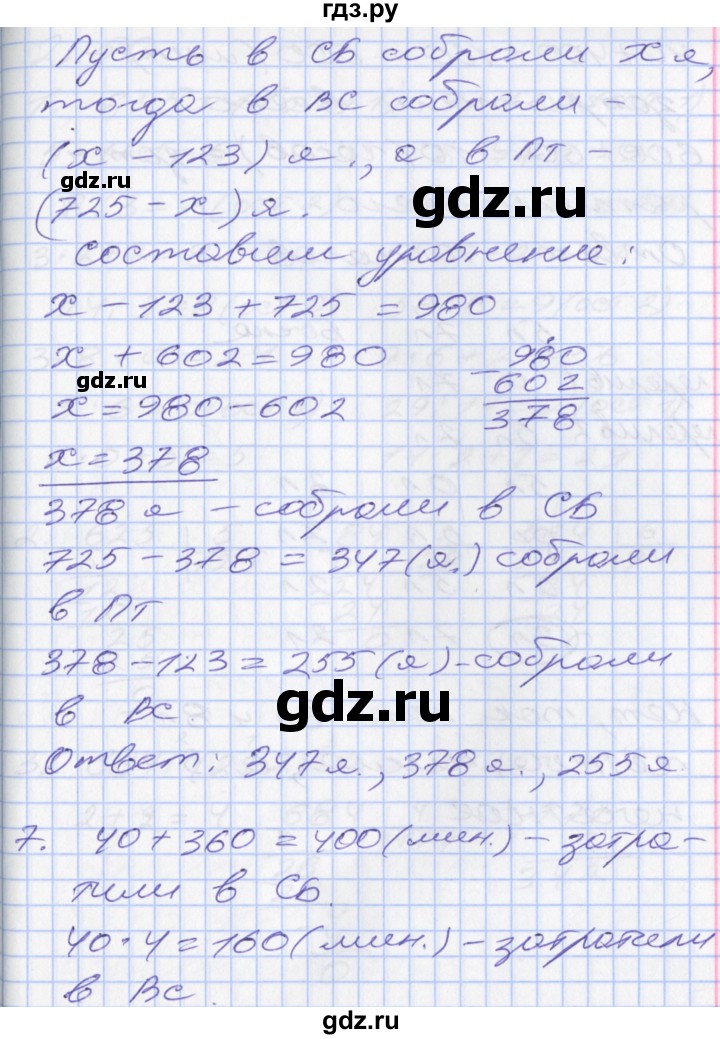 гдз.ру
Пусть в СБ собрали x я,
тогда в ВС собрали –
(x – 123) я., а в Пт –
gdz.ru
gdz.ru
(725 – x) я.
составим уравнение:
x – 123 + 725 = 980
x + 602 = 980
980
gdz.ru
– 602
x = 980 – 602
378
x = 378
378 я – собрали в СБ
725 – 378 = 347 (я.) собрали
в Пт
378 – 123 = 255 (я) – собрали
gdz.ru
в Вс.
Ответ: 347 я., 378 я., 255 я.
7. 40 + 360 = 400 (мин.) – затра-
тили в СБ.
40 · 4 = 160 (мин.) – затратили
в Вс.
gdz.ru